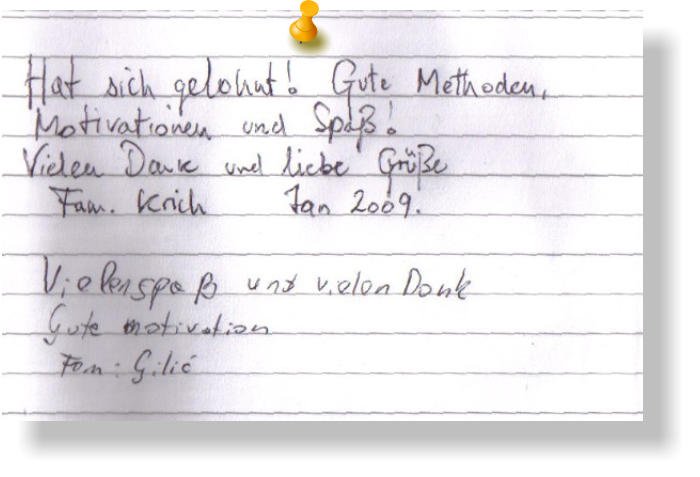 Hat sich gelohnt! Gute Methoden,
Motivationen und Spaß!
Vielen Dank und liebe Grüße
Fam. Krich Jan 2009.
Vielenspaß und vielen Dank
Gute motivation
Fam: Gilić